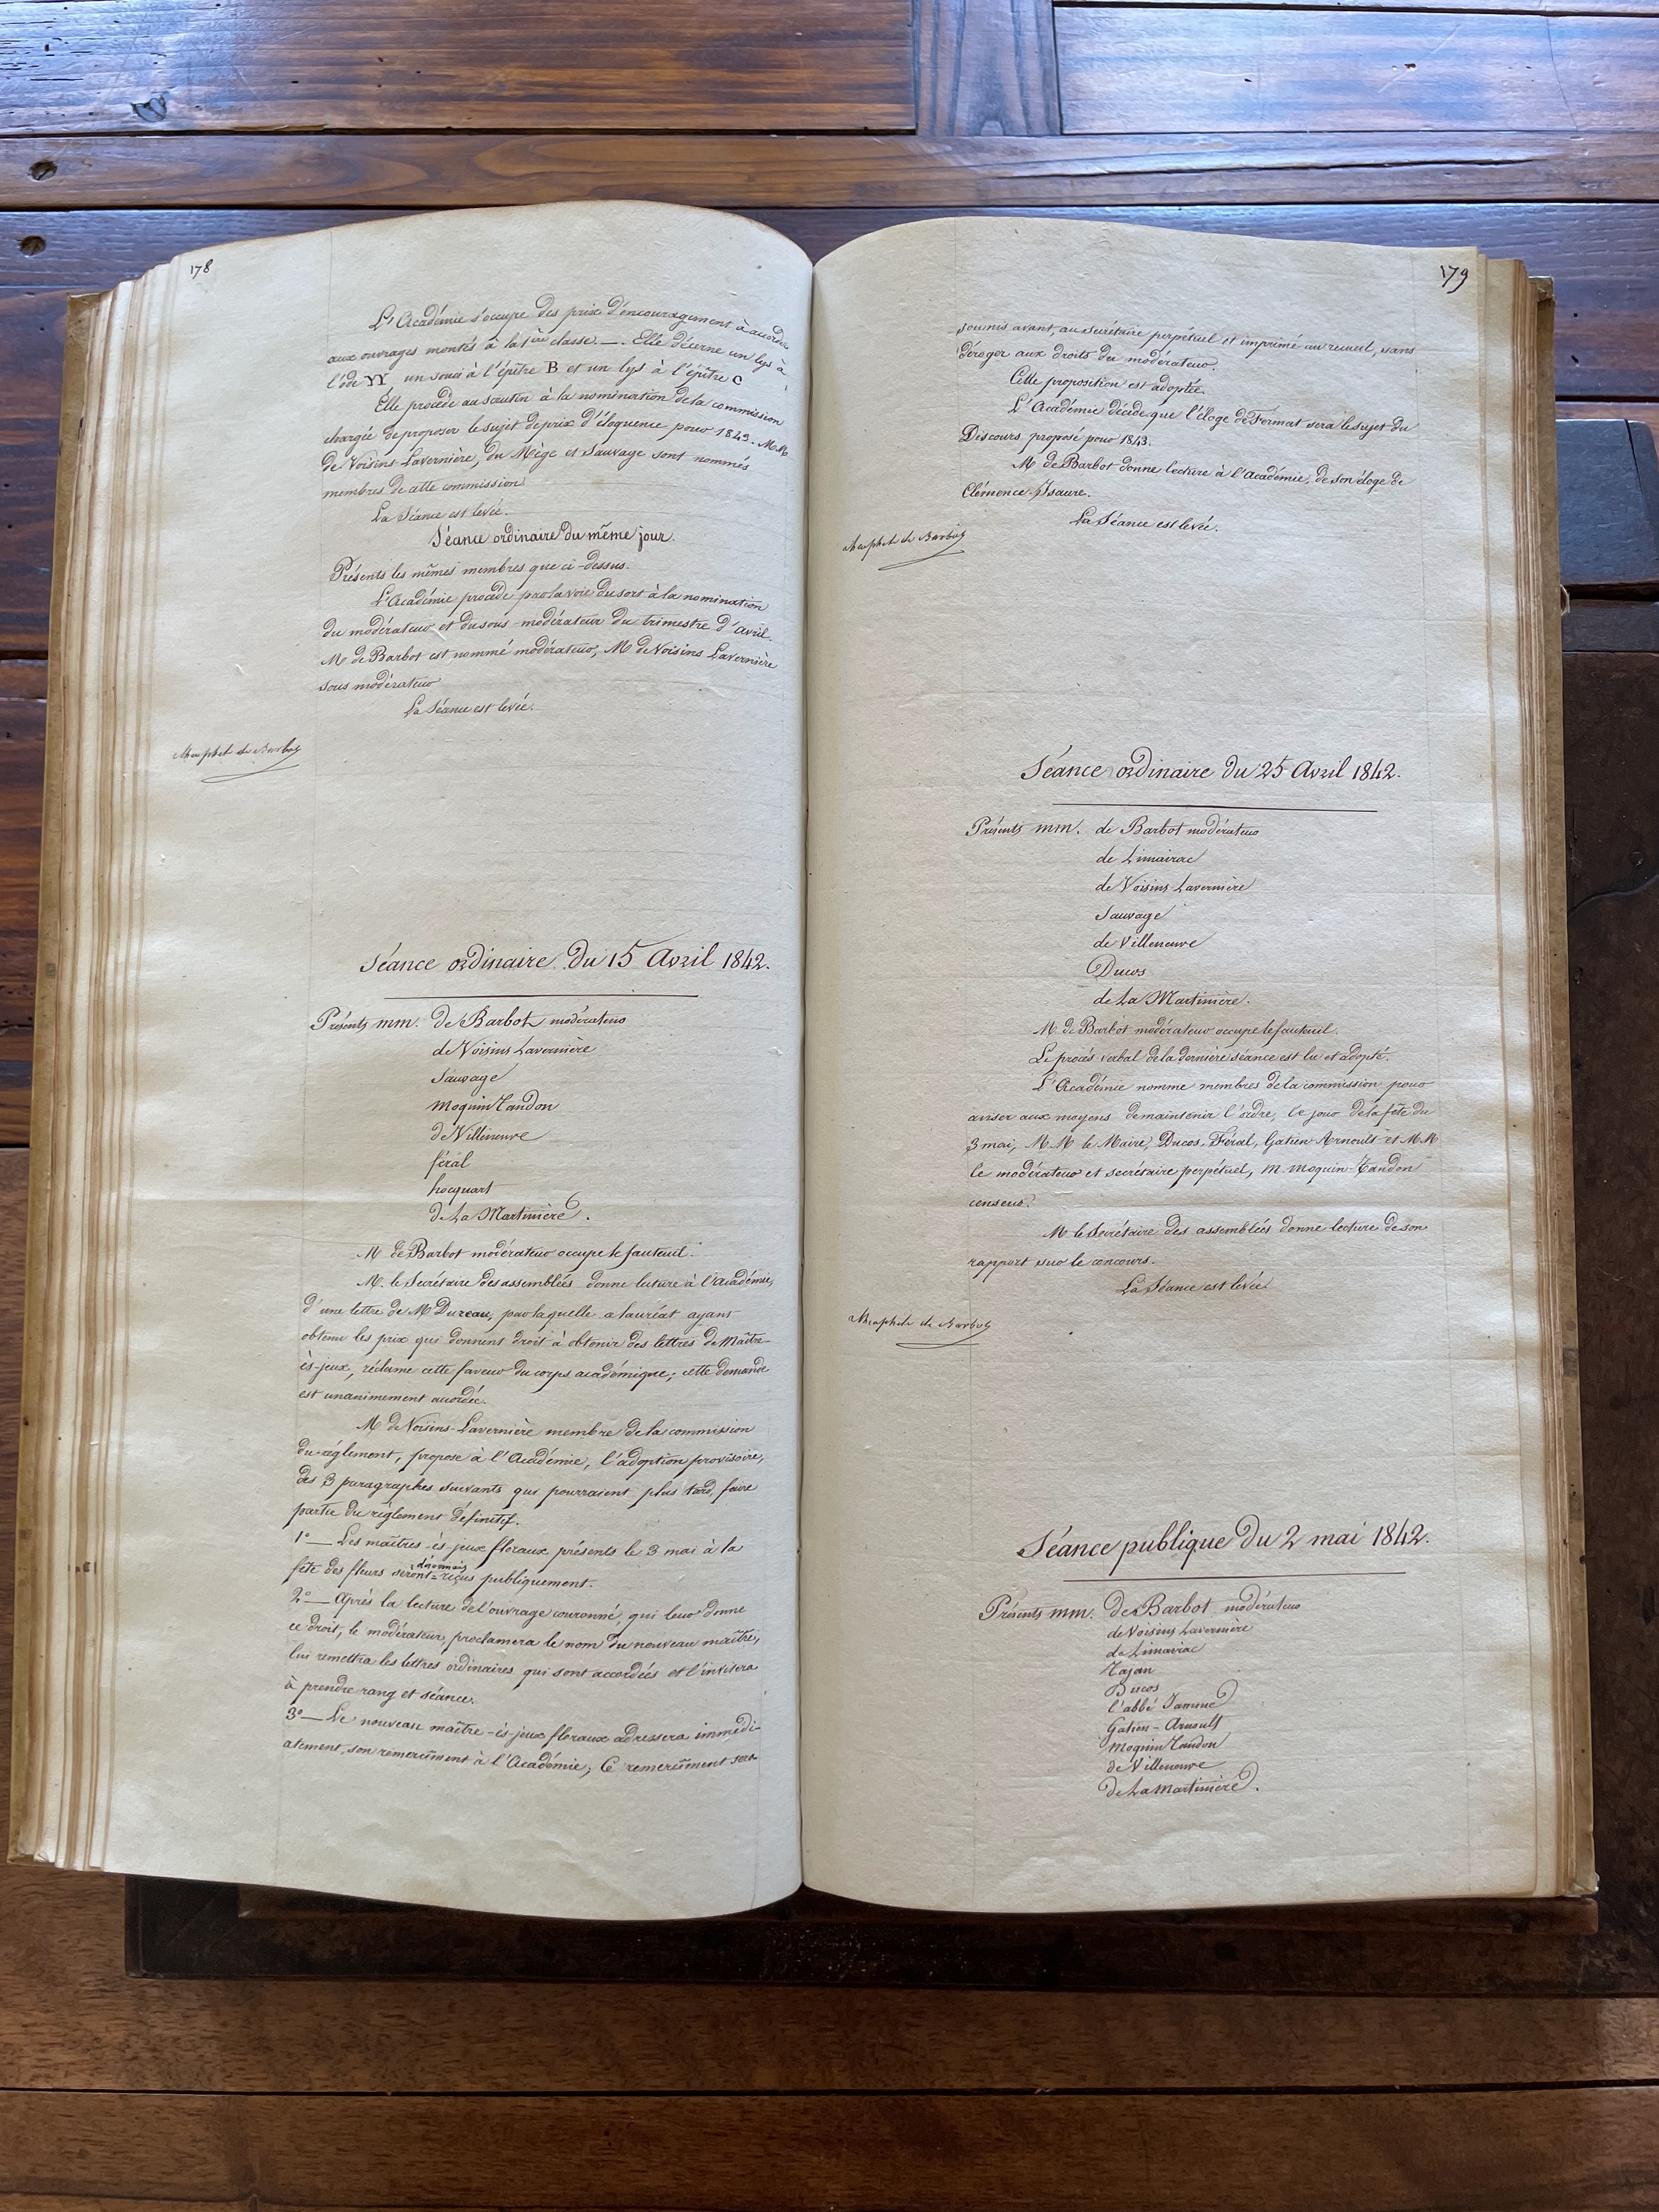 178
L'Académie s'occupe des prix d'encouragement à accorder
aux ouvrages montés à la 1ière classe. — Elle décerne un lys à
l'ode YY un souci à l'épître B et un lys à l'épître C
Elle procède au scrutin à la nomination de la commission
chargée de proposer le sujet de prix d'éloquence pour 1843. M.M.
de Voisins-Lavernière, du Mège et Sauvage sont nommés
membres de cette commission
La Séance est levée.
Séance ordinaire du même jour.
Présents les mêmes membres que ci-dessus.
L'Académie procède par la voie du sort à la nomination
du modérateur et du sous-modérateur du trimestre d'avril.
M de Barbot est nommé modérateur, M de Voisins Lavernière
sous modérateur
La Séance est levée.
de Barbot
Séance ordinaire du 15 Avril 1842.
Présents mm. de Barbot modérateur
de Voisins Lavernière
Sauvage
Moquin Tandon
de Villeneuve
féral
hocquart
de La Martinière.
M de Barbot modérateur occupe le fauteuil.
M. le Secrétaire des assemblées donne lecture à l'académie,
d'une lettre de M Dureau, par laquelle ce lauréat ayant
obtenu les prix qui donnent droit à obtenir des lettres de Maître-
ès-jeux, réclame cette faveur du corps académique; cette demande
est unanimement accordée.
M de Voisins-Lavernière membre de la commission
du règlement, propose à l'Académie, l'adoption provisoire,
des 3 paragraphes suivants qui pourraient plus tard, faire
partie du règlement définitif.
1° — Les maîtres-ès-jeux floraux présents le 3 mai à la
fête des fleurs seront désormais reçus publiquement.
2° — Après la lecture de l'ouvrage couronné, qui leur donne
ce droit, le modérateur, proclamera le nom du nouveau maître,
lui remettra les lettres ordinaires qui sont accordées et l'invitera
à prendre rang et séance.
3° — Le nouveau maître-ès-jeux floraux adressera immédi-
atement, son remercîment à l'Académie; Ce remercîment sera
179
soumis avant, au secrétaire perpétuel et imprimé au recueil, sans
déroger aux droits du modérateur.
Cette proposition est adoptée.
L'Académie décide que l'éloge de Fermat sera le sujet du
Discours proposé pour 1843.
M de Barbot donne lecture à l'Académie, de son éloge de
Clémence-Isaure.
La Séance est levée.
de Barbot
Séance ordinaire du 25 Avril 1842.
Présents mm. de Barbot modérateur
de Limairac
de Voisins Lavernière
Sauvage
de Villeneuve
Ducos
de La Martinière.
M. de Barbot modérateur occupe le fauteuil.
Le procès verbal de la dernière séance est lu et adopté.
L'Académie nomme membres de la commission pour
aviser aux moyens de maintenir l'ordre, le jour de la fête du
3 mai, M.M le Maire, Ducos, Féral, Gatien-Arnoult et M.M
le modérateur et secrétaire perpétuel, M. Moquin-Tandon
censeur.
M le Secrétaire des assemblées donne lecture de son
rapport sur le concours.
La Séance est levée.
de Barbot
Séance publique du 2 mai 1842.
Présents mm. de Barbot modérateur
de Voisins Lavernière
de Limairac
Tajan
Ducos
l'abbé Jamme
Gatien-Arnoult
Moquin Tandon
de Villeneuve
de La Martinière.